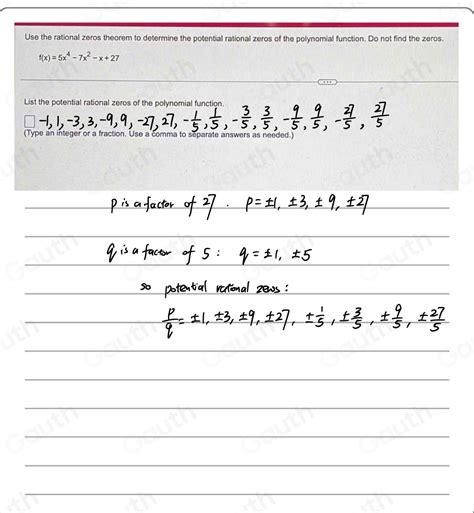 Use the rational zeros theorem to determine the potential rational zeros of the polynomial function. Do not find the zeros.
f(x) = 5x⁴ − 7x² − x + 27
List the potential rational zeros of the polynomial function.
-1, 1, -3, 3, -9, 9, -27, 27, -1/5, 1/5, -3/5, 3/5, -9/5, 9/5, -27/5, 27/5
(Type an integer or a fraction. Use a comma to separate answers as needed.)
p is a factor of 27 . p = ±1, ±3, ±9, ±27
q is a factor of 5 : q = ±1, ±5
so potential rational zeros :
p/q = ±1, ±3, ±9, ±27, ±1/5, ±3/5, ±9/5, ±27/5
Gauth